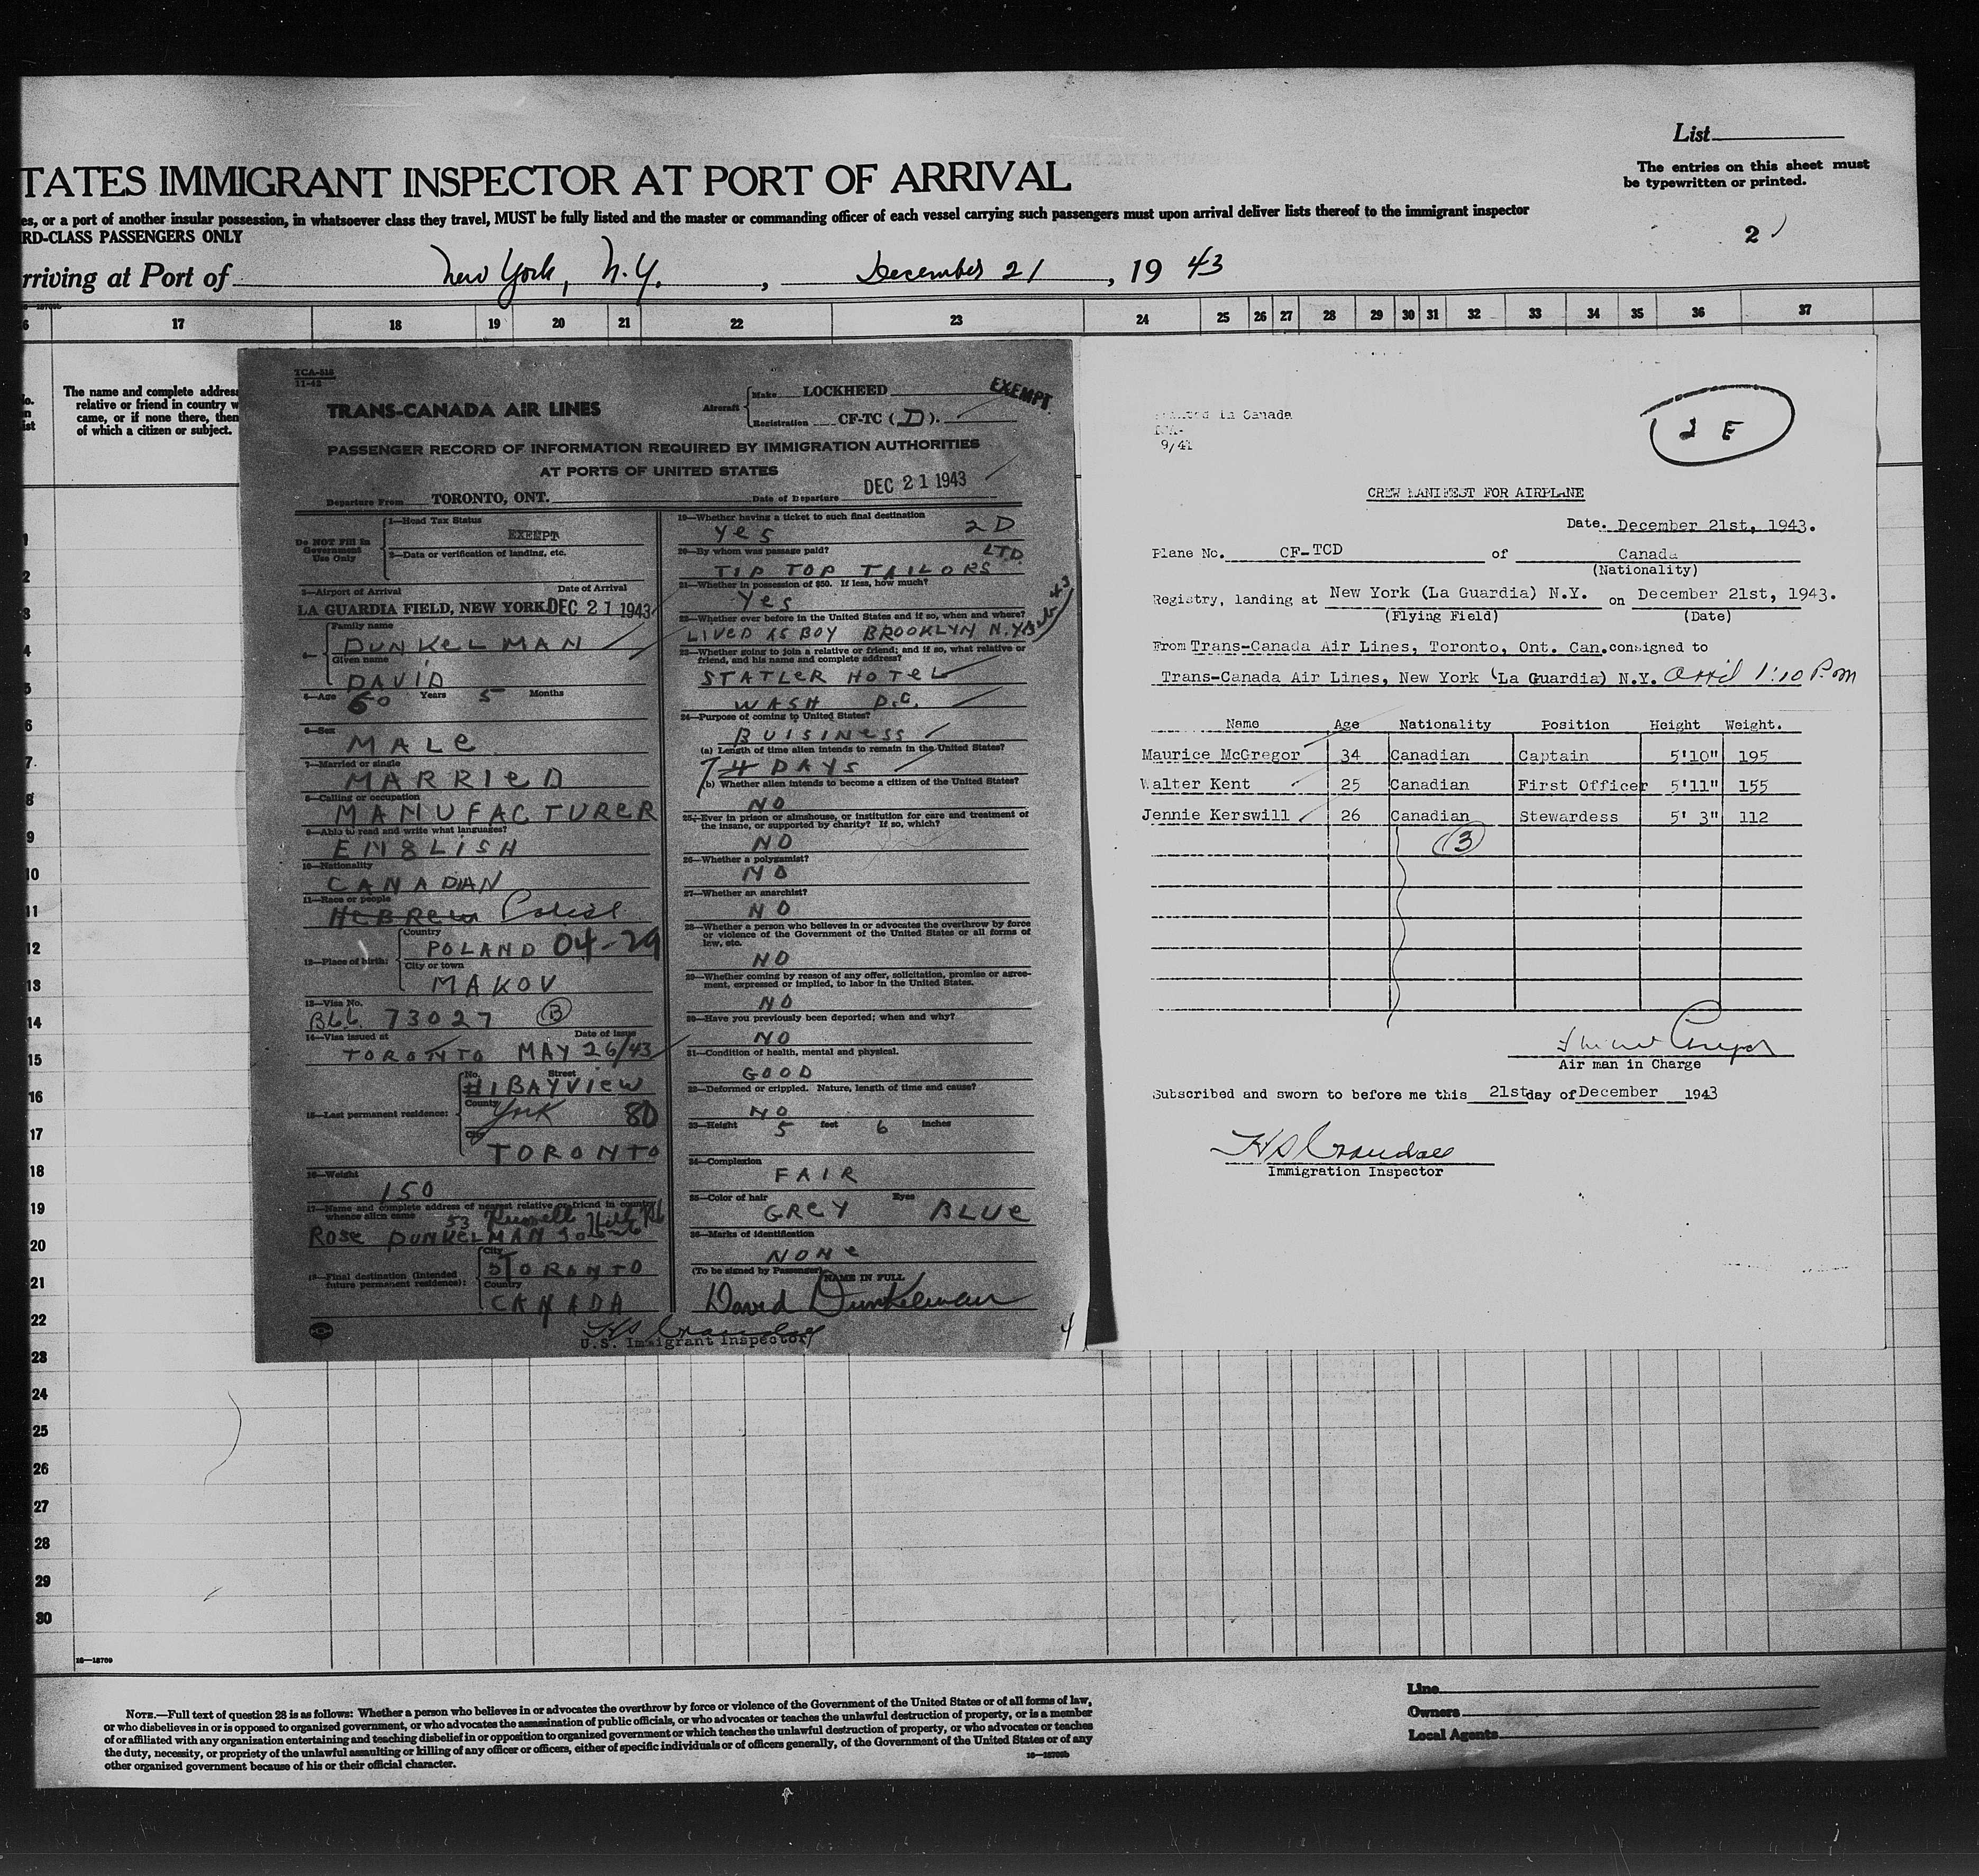 List
The entries on this sheet must
be typewritten or printed.
TATES IMMIGRANT INSPECTOR AT PORT OF ARRIVAL
es, or a port of another insular possession, in whatsoever class they travel, MUST be fully listed and the master or commanding officer of each vessel carrying such passengers must upon arrival deliver lists thereof to the immigrant inspector
RD-CLASS PASSENGERS ONLY
2
rriving at Port of New York, N.Y., December 21, 1943
6 17 18 19 20 21 22 23 24 25 26 27 28 29 30 31 32 33 34 35 36 37
The name and complete address
relative or friend in country w
came, or if none there, then
of which a citizen or subject.
TCA-515
11-42
TRANS-CANADA AIR LINES
Aircraft Make LOCKHEED
Registration CF-TC (D).
EXEMPT
PASSENGER RECORD OF INFORMATION REQUIRED BY IMMIGRATION AUTHORITIES
AT PORTS OF UNITED STATES
Departure From TORONTO, ONT. Date of Departure DEC 21 1943
Do NOT Fill in
Government
Use Only
1—Head Tax Status
EXEMPT
2—Data or verification of landing, etc.
3—Airport of Arrival Date of Arrival
LA GUARDIA FIELD, NEW YORK DEC 21 1943
Family name
DUNKELMAN
Given name
DAVID
4—Age 60 Years 5 Months
6—Sex
MALE
7—Married or single
MARRIED
8—Calling or occupation
MANUFACTURER
9—Able to read and write what languages?
ENGLISH
10—Nationality
CANADIAN
11—Race or people
HEBREW Polish
12—Place of birth:
Country
POLAND 04-29
City or town
MAKOV
13—Visa No.
B66 73027 B
14—Visa issued at Date of issue
TORONTO MAY 26/43
15—Last permanent residence:
No. Street
#1 BAYVIEW
County
York 80
City
TORONTO
16—Weight
150
17—Name and complete address of nearest relative or friend in country
whence alien came
53 Russell Hill Rd
ROSE DUNKELMAN
18—Final destination (Intended
future permanent residence):
City
TORONTO
Country
CANADA
19—Whether having a ticket to such final destination
Yes 2D
20—By whom was passage paid?
TIP TOP TAILORS LTD
21—Whether in possession of $50. If less, how much?
Yes
22—Whether ever before in the United States and if so, when and where?
LIVED AS BOY BROOKLYN N.Y.
23—Whether going to join a relative or friend; and if so, what relative or
friend, and his name and complete address?
STATLER HOTEL
WASH D.C.
24—Purpose of coming to United States?
BUISINESS
(a) Length of time alien intends to remain in the United States?
7 DAYS
(b) Whether alien intends to become a citizen of the United States?
NO
25—Ever in prison or almshouse, or institution for care and treatment of
the insane, or supported by charity? If so, which?
NO
26—Whether a polygamist?
NO
27—Whether an anarchist?
NO
28—Whether a person who believes in or advocates the overthrow by force
or violence of the Government of the United States or all forms of
law, etc.
NO
29—Whether coming by reason of any offer, solicitation, promise or agree-
ment, expressed or implied, to labor in the United States.
NO
30—Have you previously been deported; when and why?
NO
31—Condition of health, mental and physical.
GOOD
32—Deformed or crippled. Nature, length of time and cause?
NO
33—Height 5 feet 6 inches
34—Complexion
FAIR
35—Color of hair Eyes
GREY BLUE
36—Marks of identification
NONE
(To be signed by Passenger) NAME IN FULL
David Dunkelman
U.S. Immigrant Inspector
4
Printed in Canada
9/41
2 E
CREW MANIFEST FOR AIRPLANE
Date. December 21st, 1943.
Plane No. CF-TCD of Canada
(Nationality)
Registry, landing at New York (La Guardia) N.Y. on December 21st, 1943.
(Flying Field) (Date)
From Trans-Canada Air Lines, Toronto, Ont. Can. consigned to
Trans-Canada Air Lines, New York (La Guardia) N.Y. 1:10 P.m
Name Age Nationality Position Height Weight.
Maurice McGregor 34 Canadian Captain 5'10" 195
Walter Kent 25 Canadian First Officer 5'11" 155
Jennie Kerswill 26 Canadian Stewardess 5' 3" 112
3
Air man in Charge
Subscribed and sworn to before me this 21st day of December 1943
HS Crandall
Immigration Inspector
1
2
3
4
5
6
7
8
9
10
11
12
13
14
15
16
17
18
19
20
21
22
23
24
25
26
27
28
29
30
16—18709
NOTE.—Full text of question 28 is as follows: Whether a person who believes in or advocates the overthrow by force or violence of the Government of the United States or of all forms of law,
or who disbelieves in or is opposed to organized government, or who advocates the assassination of public officials, or who advocates or teaches the unlawful destruction of property, or is a member
of or affiliated with any organization entertaining and teaching disbelief in or opposition to organized government or which teaches the unlawful destruction of property, or who advocates or teaches
the duty, necessity, or propriety of the unlawful assaulting or killing of any officer or officers, either of specific individuals or of officers generally, of the Government of the United States or of any
other organized government because of his or their official character.
16—18709b
Line
Owners
Local Agents